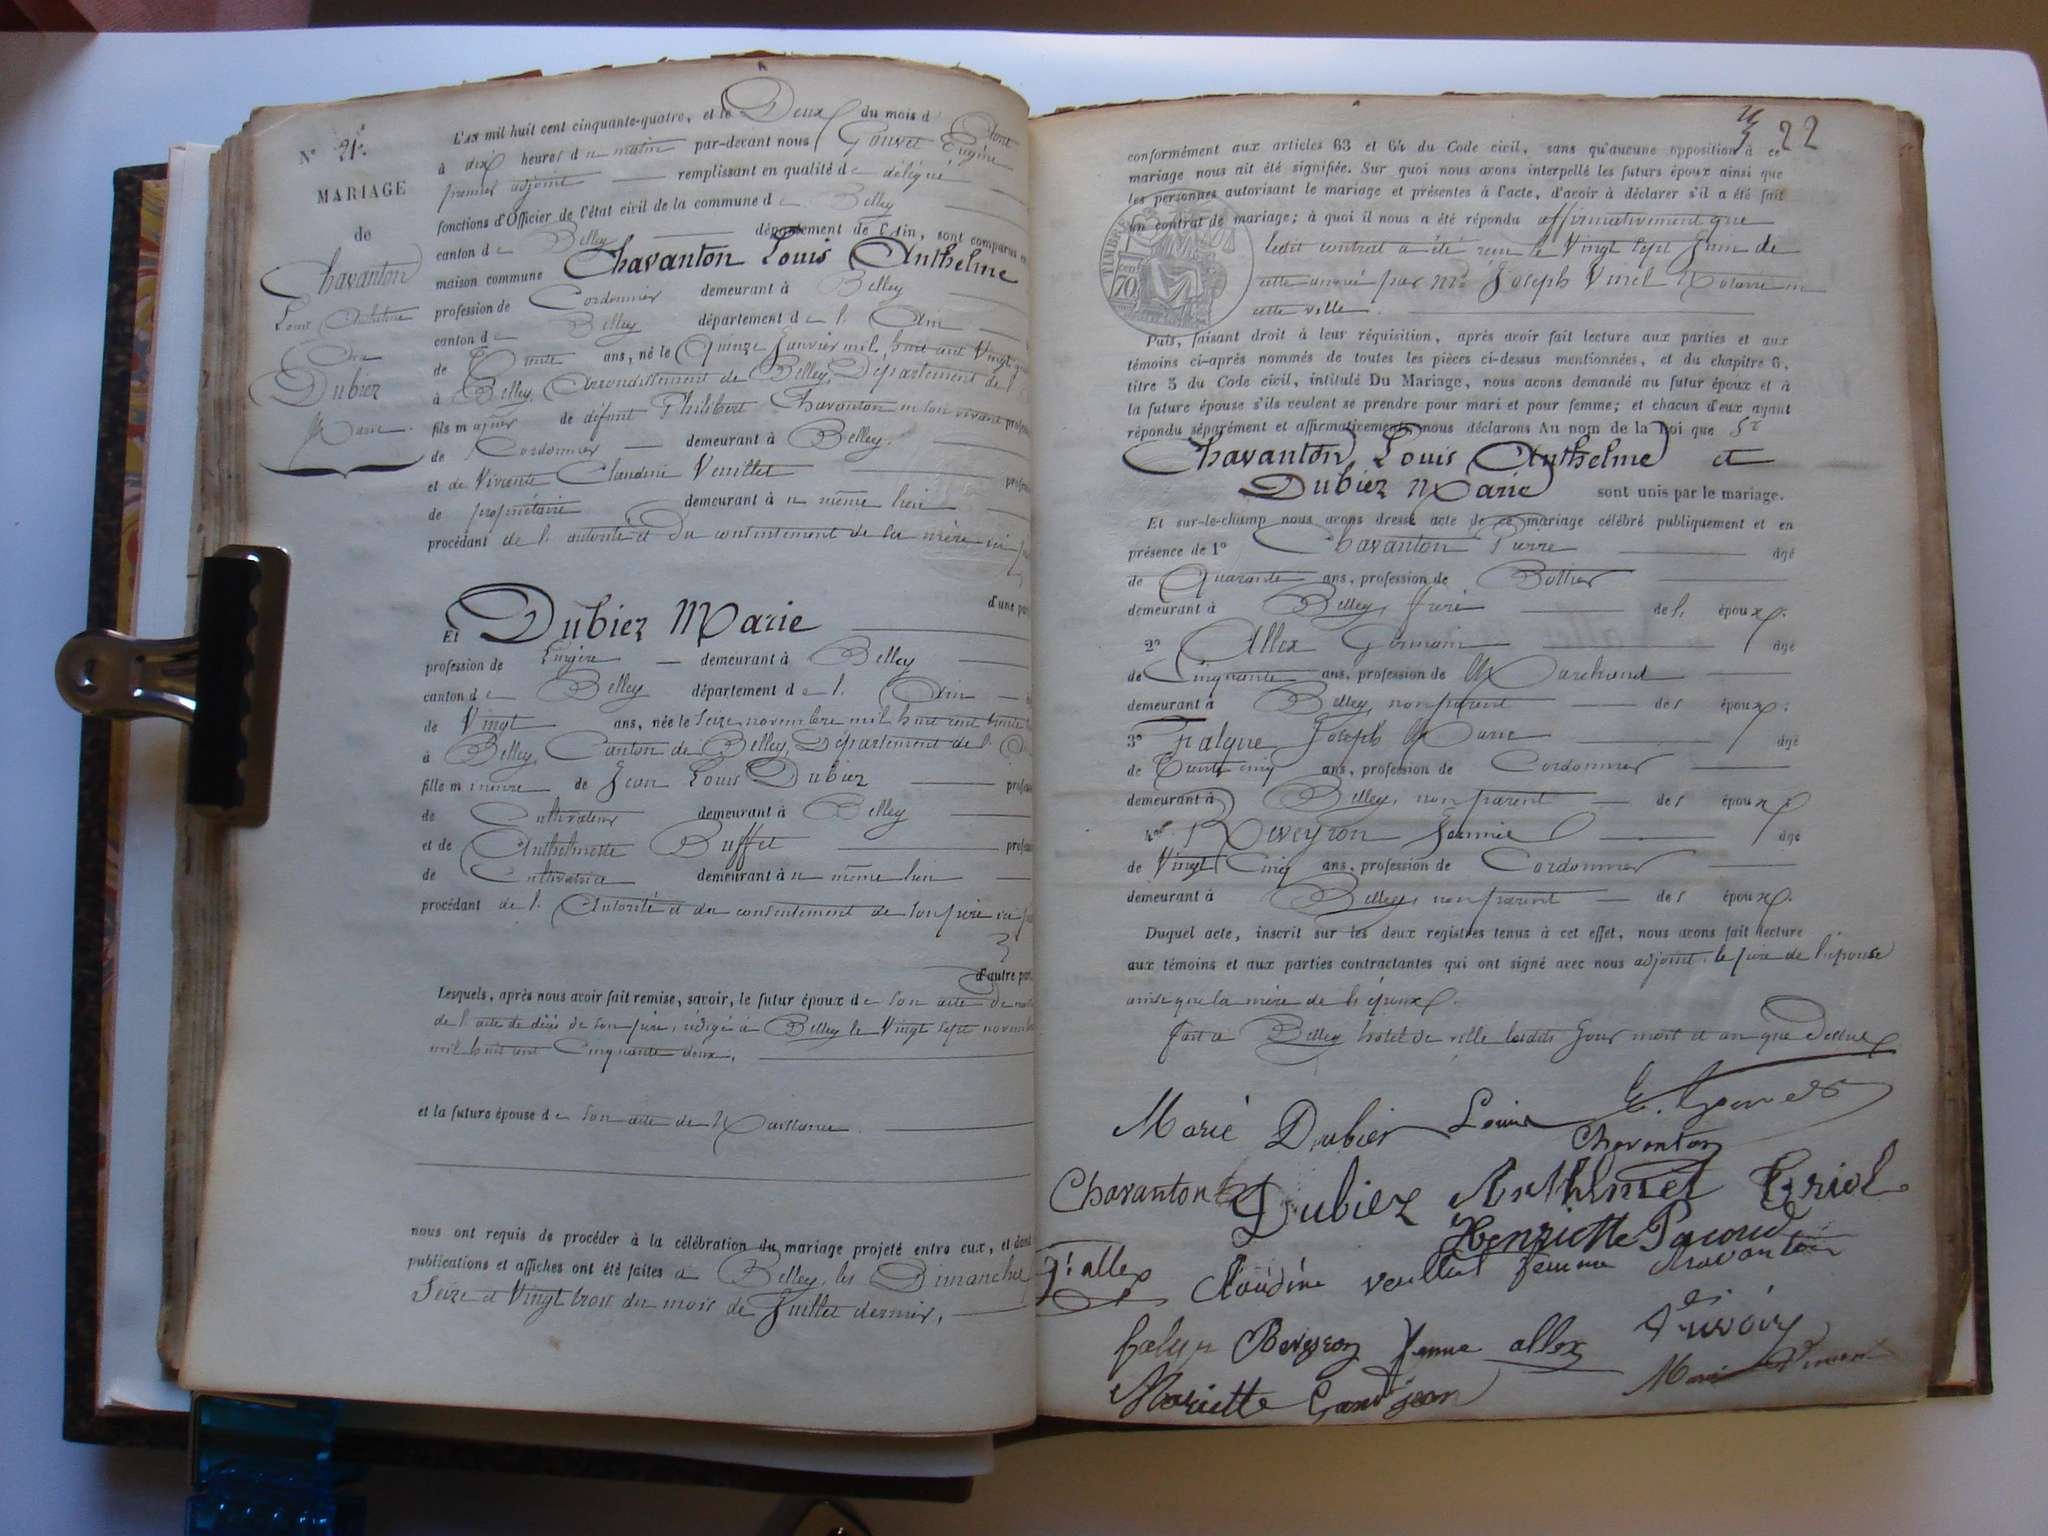 N° 21.
MARIAGE
de
Chavanton
Louis Anthelme
Dubiez
Marie
L'AN mil huit cent cinquante-quatre, et le Deux du mois d'Aout
à dix heures du matin par-devant nous Gouvet Eugène
premier adjoint remplissant en qualité de délégué
fonctions d'Officier de l'état civil de la commune de Belley
canton de Belley département de l'Ain, sont comparus en
maison commune Chavanton Louis Anthelme
profession de Cordonnier demeurant à Belley
canton de Belley département de l'Ain
de Trente ans, né le Quinze Janvier mil huit cent Vingt
à Belley, Arrondissement de Belley, Département de l'
fils majeur de défunt Philibert Chavanton en son vivant
de Cordonnier demeurant à Belley.
et de Vivante Claudine Veuillet
de propriétaire demeurant à même lieu
procédant de l'autorité et du consentement de la mère ici
d'une part
Et Dubiez Marie
profession de Lingère demeurant à Belley
canton de Belley département de l'Ain
de Vingt ans, née le seize novembre mil huit cent trente
à Belley, Canton de Belley, Département de l'
fille mineure de Jean Louis Dubiez
de Cultivateur demeurant à Belley
et de Anthelmette Buffet
de Cultivatrice demeurant à même lieu
procédant de l'Autorité et du consentement de son père ici
d'autre part
Lesquels, après nous avoir fait remise, savoir, le futur époux de son acte de
de l'acte de décès de son père, rédigé à Belley le Vingt sept novembre
mil huit cent Cinquante deux,
et la future épouse de son acte de Naissance.
nous ont requis de procéder à la célébration du mariage projeté entre eux, et dont
publications et affiches ont été faites à Belley, les Dimanches
Seize et Vingt trois du mois de Juillet dernier,
22
conformément aux articles 63 et 64 du Code civil, sans qu'aucune opposition à ce
mariage nous ait été signifiée. Sur quoi nous avons interpellé les futurs époux ainsi que
les personnes autorisant le mariage et présentes à l'acte, d'avoir à déclarer s'il a été fait
un contrat de mariage; à quoi il nous a été répondu affirmativement que
ledit contrat a été reçu le Vingt sept Juin de
cette année par Me Joseph Vinet Notaire en
cette ville.
TIMBRE
70
Puis, faisant droit à leur réquisition, après avoir fait lecture aux parties et aux
témoins ci-après nommés de toutes les pièces ci-dessus mentionnées, et du chapitre 6,
titre 5 du Code civil, intitulé Du Mariage, nous avons demandé au futur époux et à
la future épouse s'ils veulent se prendre pour mari et pour femme; et chacun d'eux ayant
répondu séparément et affirmativement, nous déclarons Au nom de la Loi que Sr
Chavanton Louis Anthelme et
Dubiez Marie sont unis par le mariage.
Et sur-le-champ nous avons dressé acte de ce mariage célébré publiquement et en
présence de 1° Chavanton Pierre âgé
de Quarante ans, profession de Bottier
demeurant à Belley, frère de l'époux.
2° Allex Germain âgé
de Cinquante ans, profession de Marchand
demeurant à Belley, non parent des époux.
3° Falque Joseph Marie âgé
de Trente cinq ans, profession de Cordonnier
demeurant à Belley, non parent des époux.
4° Reveyron Jennie âgé
de Vingt Cinq ans, profession de Cordonnier
demeurant à Belley, non parent des époux.
Duquel acte, inscrit sur les deux registres tenus à cet effet, nous avons fait lecture
aux témoins et aux parties contractantes qui ont signé avec nous adjoint, le père de l'épouse
ainsi que la mère de l'époux.
fait à Belley hotel de ville lesdits Jour mois et an que Dessus
Marie Dubiez Louis Chavanton
Chavanton Dubiez Anthelmet
Henriette Pacoud
allex Claudine veuillet femme Chavanton
Reveyron femme allex
Mariette Grandjean